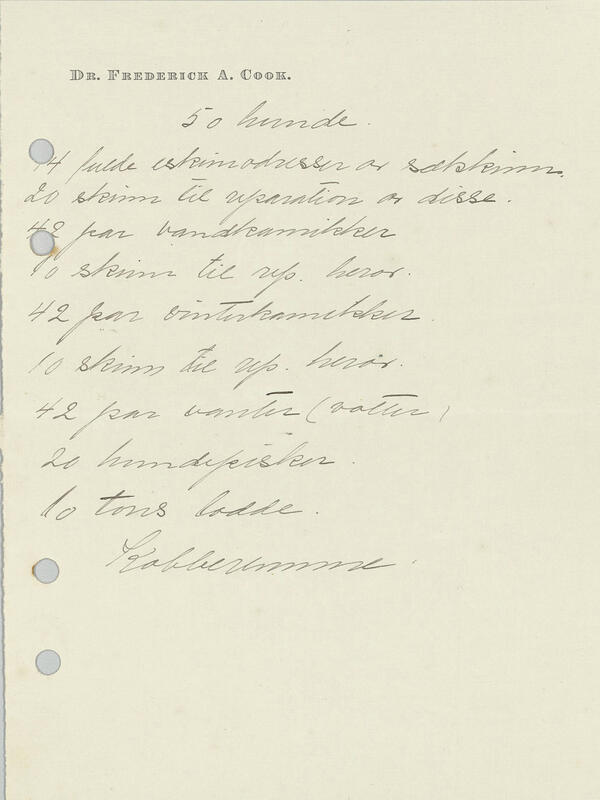 DR. FREDERICK A. COOK.
50 hunde.
14 fulde eskimodresser av sælskinn.
20 skinn til reparation av disse.
42 par vandkamikker
10 skinn til rep. herav.
42 par vinterkamikker.
10 skinn til rep. herav.
42 par vanter (votter)
20 hundepisker.
10 tons lodde.